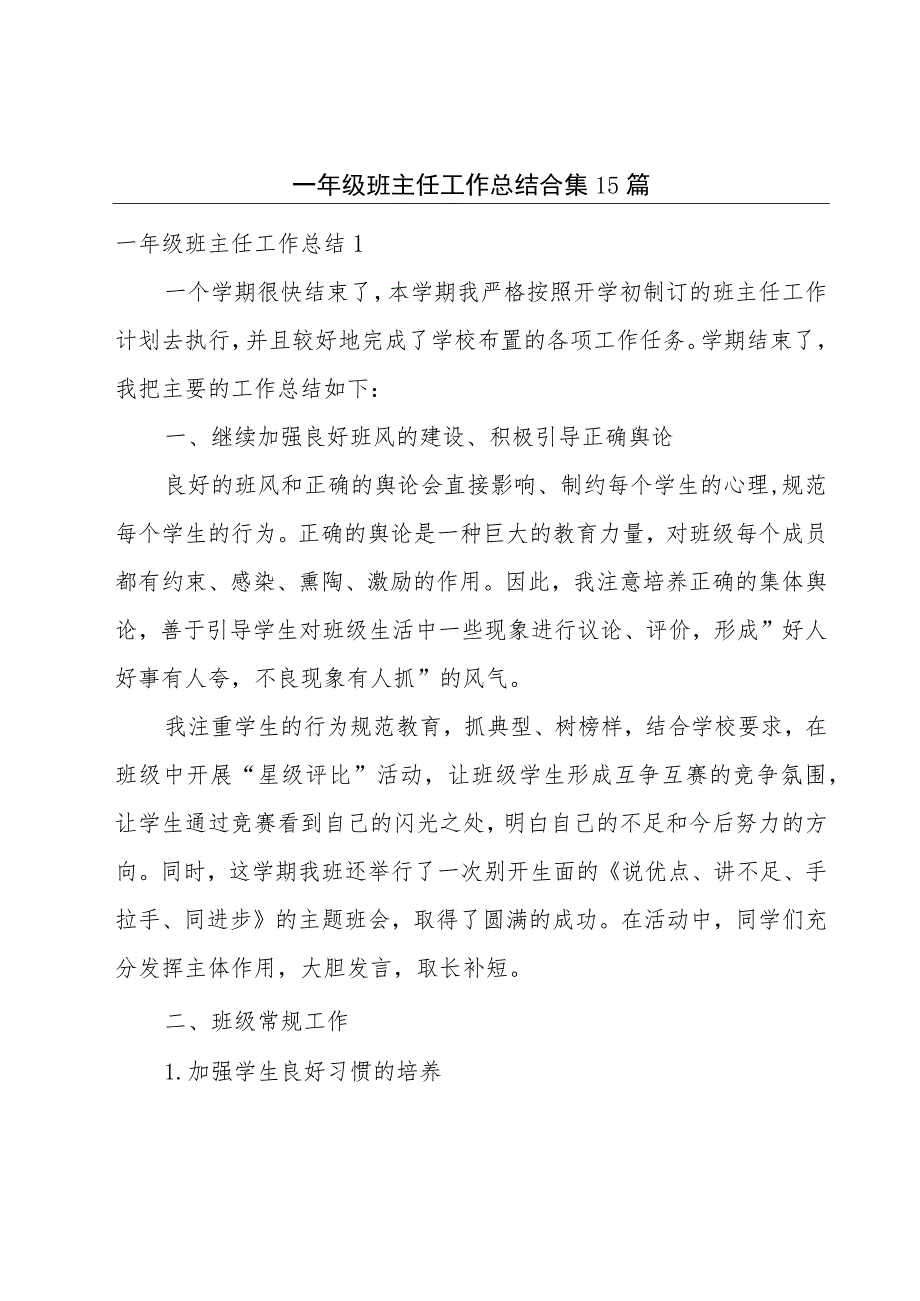 一年级班主任工作总结合集 15 篇
一年级班主任工作总结 1
一个学期很快结束了,本学期我严格按照开学初制订的班主任工作
计划去执行,并且较好地完成了学校布置的各项工作任务。学期结束了,
我把主要的工作总结如下:
一、继续加强良好班风的建设、积极引导正确舆论
良好的班风和正确的舆论会直接影响、制约每个学生的心理,规范
每个学生的行为。正确的舆论是一种巨大的教育力量，对班级每个成员
都有约束、感染、熏陶、激励的作用。因此，我注意培养正确的集体舆
论，善于引导学生对班级生活中一些现象进行议论、评价，形成”好人
好事有人夸，不良现象有人抓”的风气。
我注重学生的行为规范教育，抓典型、树榜样，结合学校要求，在
班级中开展“星级评比”活动，让班级学生形成互争互赛的竞争氛围,
让学生通过竞赛看到自己的闪光之处,明白自己的不足和今后努力的方
向。同时，这学期我班还举行了一次别开生面的《说优点、讲不足、手
拉手、同进步》的主题班会，取得了圆满的成功。在活动中，同学们充
分发挥主体作用，大胆发言，取长补短。
二、班级常规工作
1.加强学生良好习惯的培养